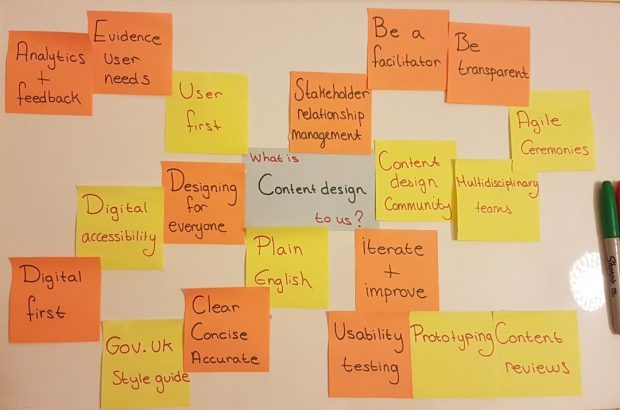 Analytics
+
feedback
Evidence
User
needs
User
first
Stakeholder
relationship
management
Be a
facilitator
Be
transparent
Agile
Ceremonies
What is
Content design
to us?
Content
design
Community
Multidisciplinary
teams
Designing
for
everyone
Digital
accessibility
Plain
English
iterate
+
improve
Digital
first
Gov.UK
Style guide
Clear
Concise
Accurate
Usability
testing
Prototyping
Content
reviews
Sharpie